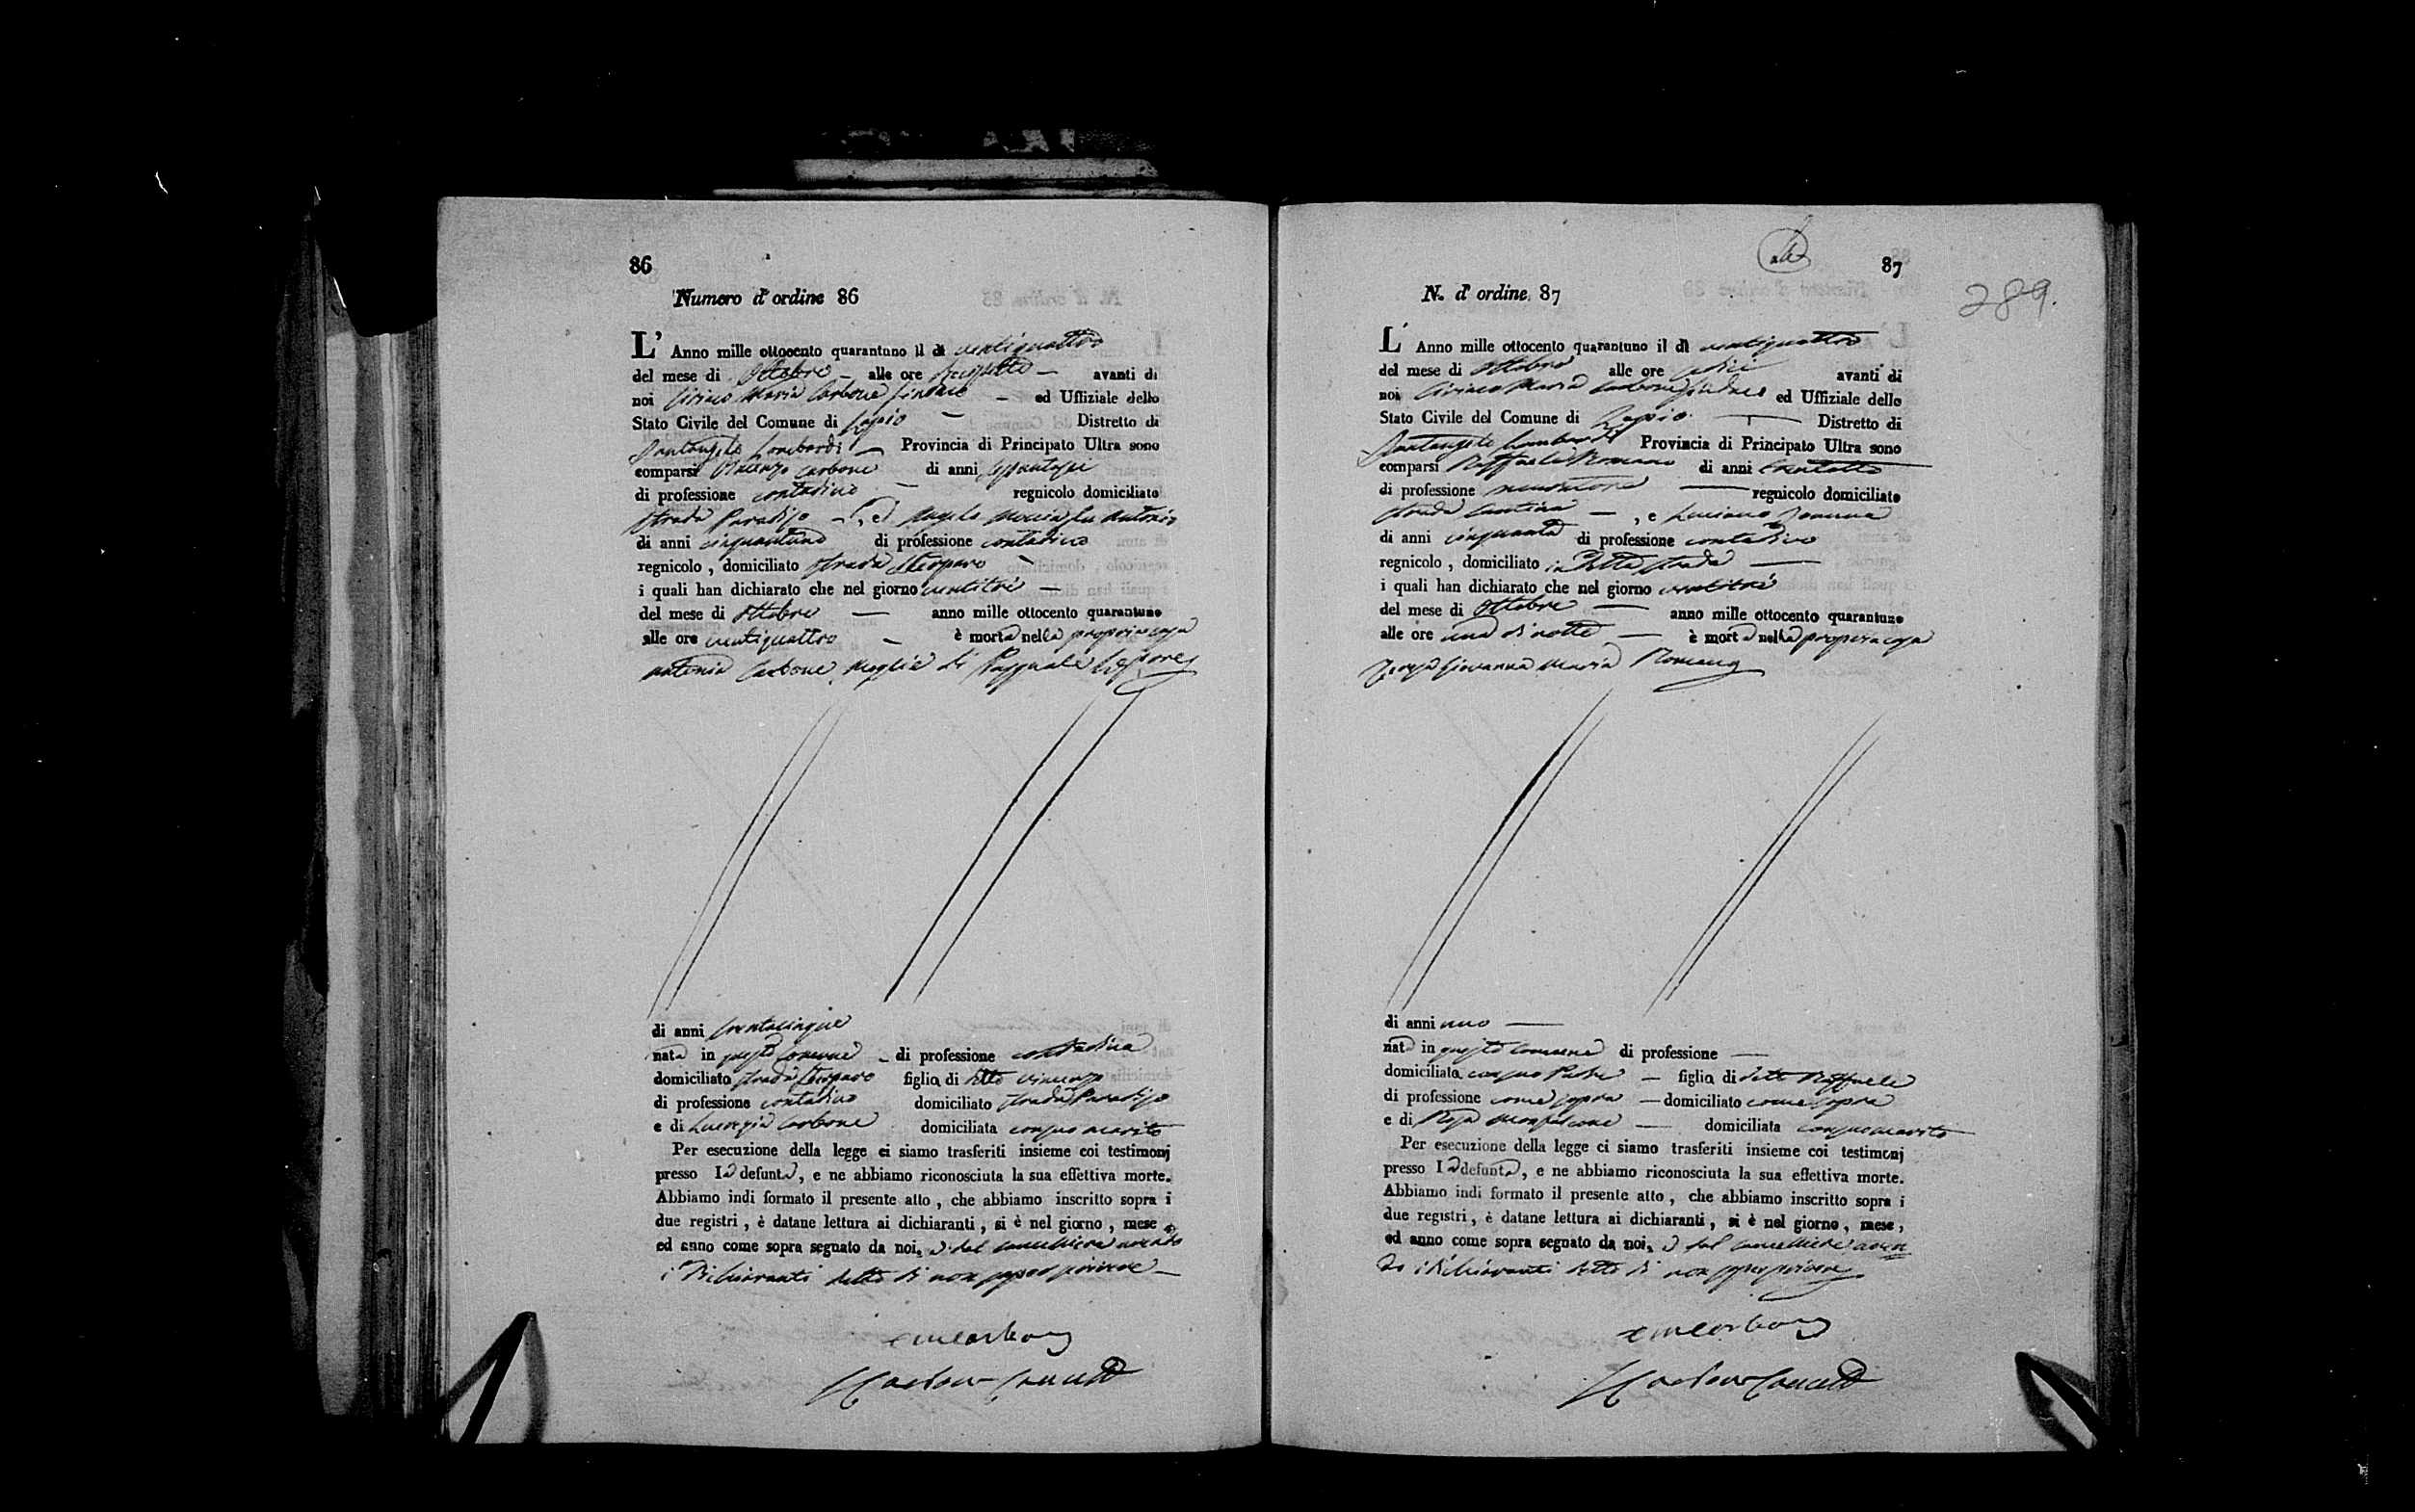 86
Numero d'ordine 86
L' Anno mille ottocento quarantuno il dì ventiquattro
del mese di Ottobre alle ore avanti di
noi Ciriaco Maria Carbone Sindaco ed Uffiziale dello
Stato Civile del Comune di Lapio Distretto di
Santangelo Lombardi Provincia di Principato Ultra sono
comparsi Vincenzo Carbone di anni
di professione contadino regnicolo domiciliato
strada Paradiso , e Angelo Moccia fu Antonio
di anni cinquantuno di professione contadino
regnicolo , domiciliato strada
i quali han dichiarato che nel giorno ventitrè
del mese di Ottobre anno mille ottocento quarantuno
alle ore ventiquattro è morta nella propria casa
Antonia Carbone moglie di Pasquale Lepore
di anni trentacinque
nata in questo Comune di professione contadina
domiciliato strada figlia di detto Vincenzo
di professione contadino domiciliato strada Paradiso
e di Lucrezia Carbone domiciliata con suo marito
Per esecuzione della legge ci siamo trasferiti insieme coi testimonj
presso la defunta, e ne abbiamo riconosciuta la sua effettiva morte.
Abbiamo indi formato il presente atto , che abbiamo inscritto sopra i
due registri , è datane lettura ai dichiaranti , si è nel giorno , mese ,
ed anno come sopra segnato da noi, e dal Cancelliere avendo
i dichiaranti detto di non saper scrivere
CMCarbone
87
N. d'ordine 87
289.
L' Anno mille ottocento quarantuno il dì ventiquattro
del mese di Ottobre alle ore avanti di
noi Ciriaco Maria Carbone Sindaco ed Uffiziale dello
Stato Civile del Comune di Lapio Distretto di
Santangelo Lombardi Provincia di Principato Ultra sono
comparsi Raffaele Romano di anni trentotto
di professione regnicolo domiciliato
strada Cantina , e Luciano
di anni cinquanta di professione contadino
regnicolo , domiciliato in detta strada
i quali han dichiarato che nel giorno ventitrè
del mese di Ottobre anno mille ottocento quarantuno
alle ore una di notte è morta nella propria casa
Giovanna Maria Romano
di anni uno
nata in questo Comune di professione
domiciliata con suo Padre figlia di detto Raffaele
di professione come sopra domiciliato come sopra
e di Rosa domiciliata con suo marito
Per esecuzione della legge ci siamo trasferiti insieme coi testimonj
presso la defunta, e ne abbiamo riconosciuta la sua effettiva morte.
Abbiamo indi formato il presente atto , che abbiamo inscritto sopra i
due registri , è datane lettura ai dichiaranti , si è nel giorno , mese ,
ed anno come sopra segnato da noi, e dal Cancelliere aven
do i dichiaranti detto di non saper scrivere
CMCarbone